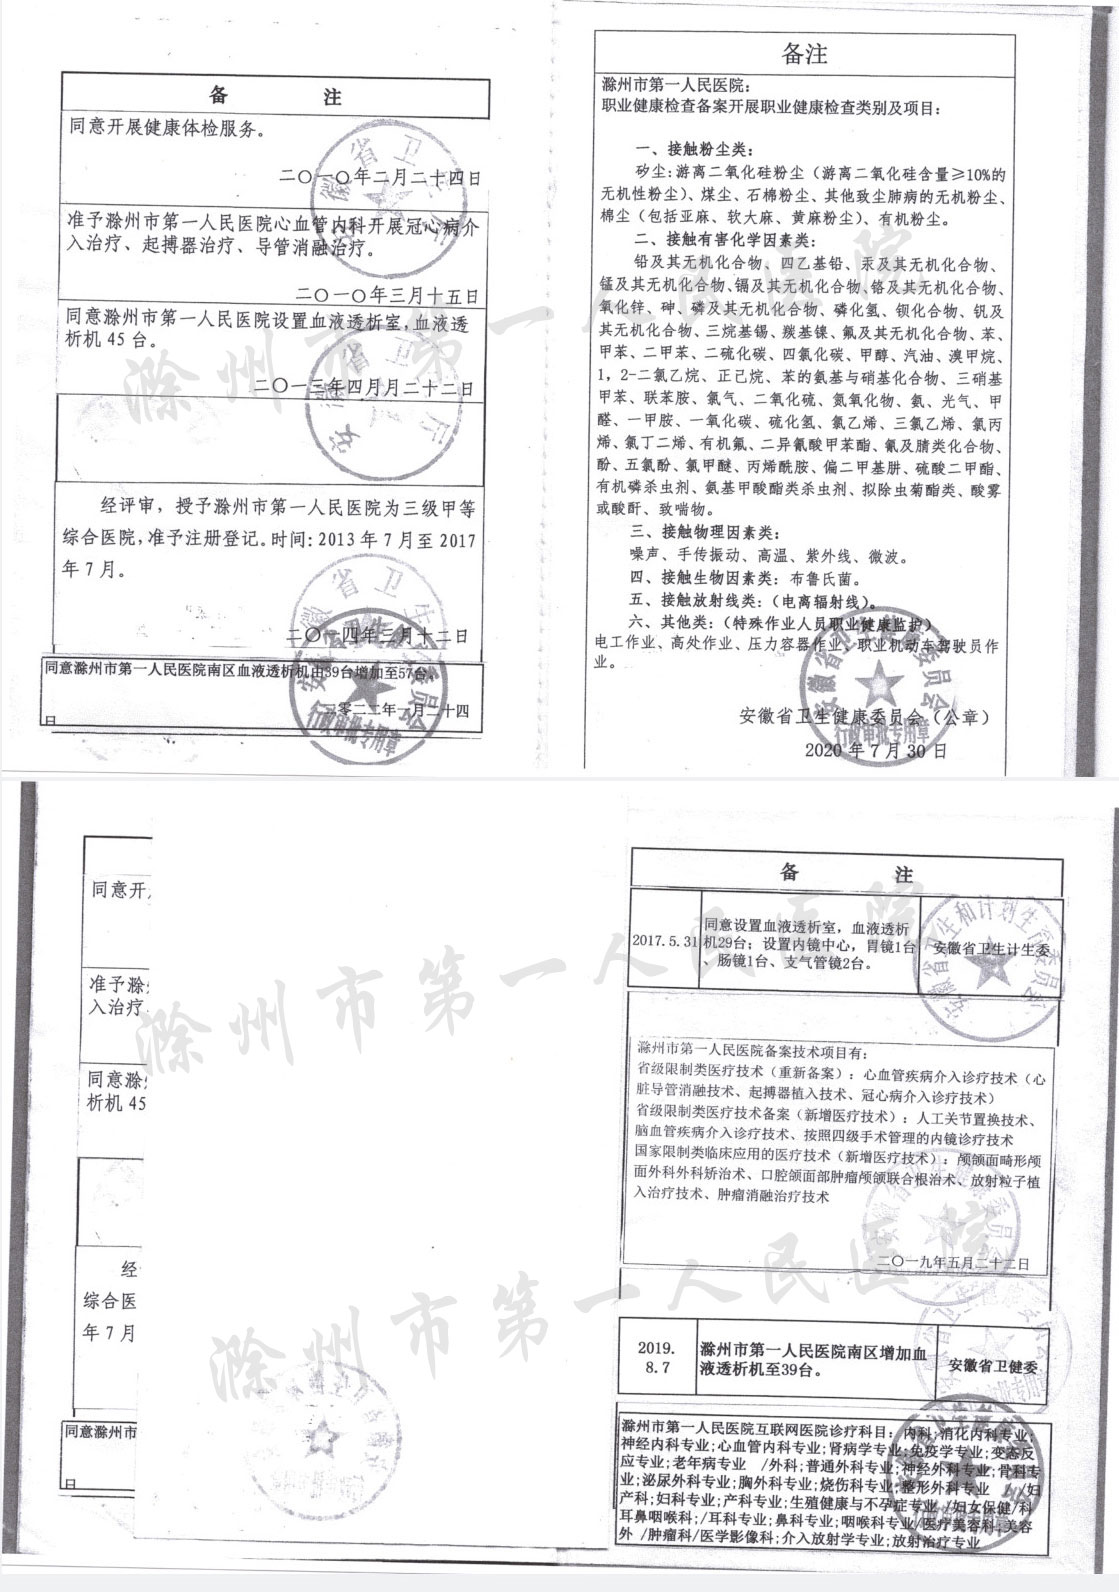 备 注
同意开展健康体检服务。
二〇一〇年二月二十四日
准予滁州市第一人民医院心血管内科开展冠心病介
入治疗、起搏器治疗、导管消融治疗。
二〇一〇年三月十五日
同意滁州市第一人民医院设置血液透析室,血液透
析机 45 台。
二〇一三年四月月二十二日
经评审，授予滁州市第一人民医院为三级甲等
综合医院,准予注册登记。时间: 2013 年 7 月至 2017
年 7 月。
二〇一四年三月十二日
同意滁州市第一人民医院南区血液透析机由39台增加至57台。
二零二二年一月二十四
日
备注
滁州市第一人民医院:
职业健康检查备案开展职业健康检查类别及项目:
一、接触粉尘类:
矽尘:游离二氧化硅粉尘（游离二氧化硅含量≥10%的
无机性粉尘）、煤尘、石棉粉尘、其他致尘肺病的无机粉尘、
棉尘（包括亚麻、软大麻、黄麻粉尘）、有机粉尘。
二、接触有害化学因素类:
铅及其无机化合物、四乙基铅、汞及其无机化合物、
锰及其无机化合物、镉及其无机化合物、铬及其无机化合物、
氧化锌、砷、磷及其无机化合物、磷化氢、钡化合物、钒及
其无机化合物、三烷基锡、羰基镍、氟及其无机化合物、苯、
甲苯、二甲苯、二硫化碳、四氯化碳、甲醇、汽油、溴甲烷、
1，2-二氯乙烷、正己烷、苯的氨基与硝基化合物、三硝基
甲苯、联苯胺、氯气、二氧化硫、氮氧化物、氨、光气、甲
醛、一甲胺、一氧化碳、硫化氢、氯乙烯、三氯乙烯、氯丙
烯、氯丁二烯、有机氟、二异氰酸甲苯酯、氰及腈类化合物、
酚、五氯酚、氯甲醚、丙烯酰胺、偏二甲基肼、硫酸二甲酯、
有机磷杀虫剂、氨基甲酸酯类杀虫剂、拟除虫菊酯类、酸雾
或酸酐、致喘物。
三、接触物理因素类:
噪声、手传振动、高温、紫外线、微波。
四、接触生物因素类: 布鲁氏菌。
五、接触放射线类:（电离辐射线）。
六、其他类:（特殊作业人员职业健康监护）
电工作业、高处作业、压力容器作业、职业机动车驾驶员作
业。
安徽省卫生健康委员会（公章）
2020 年 7 月 30 日
安徽省卫生健康委员会
行政审批专用章
滁州市第一人民医院
同意开
准予滁
入治疗
同意滁
析机 45
经
综合医
年 7 月
同意滁州市
日
备 注
2017.5.31
同意设置血液透析室，血液透析
机29台；设置内镜中心，胃镜1台
、肠镜1台、支气管镜2台。
安徽省卫生计生委
滁州市第一人民医院备案技术项目有:
省级限制类医疗技术（重新备案）: 心血管疾病介入诊疗技术（心
脏导管消融技术、起搏器植入技术、冠心病介入诊疗技术）
省级限制类医疗技术备案（新增医疗技术）: 人工关节置换技术、
脑血管疾病介入诊疗技术、按照四级手术管理的内镜诊疗技术
国家限制类临床应用的医疗技术（新增医疗技术）: 颅颌面畸形颅
面外科外科矫治术、口腔颌面部肿瘤颅颌联合根治术、放射粒子植
入治疗技术、肿瘤消融治疗技术
二〇一九年五月二十二日
2019.
8.7
滁州市第一人民医院南区增加血
液透析机至39台。
安徽省卫健委
滁州市第一人民医院互联网医院诊疗科目: 内科;消化内科专业;
神经内科专业;心血管内科专业;肾病学专业;免疫学专业;变态反
应专业;老年病专业 /外科;普通外科专业;神经外科专业;骨科专
业;泌尿外科专业;胸外科专业;烧伤科专业;整形外科专业 /妇
产科;妇科专业;产科专业;生殖健康与不孕症专业 /妇女保健/科
耳鼻咽喉科;/耳科专业;鼻科专业;咽喉科专业/医疗美容科;美容
外 /肿瘤科/医学影像科;介入放射学专业;放射治疗专业
滁州市第一人民医院
滁州市第一人民医院